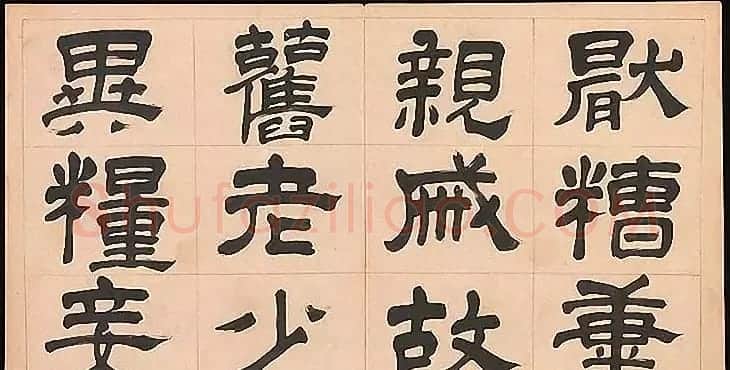 猒糟
親戚故
舊老少
異糧妾
Shufaziliao.COM